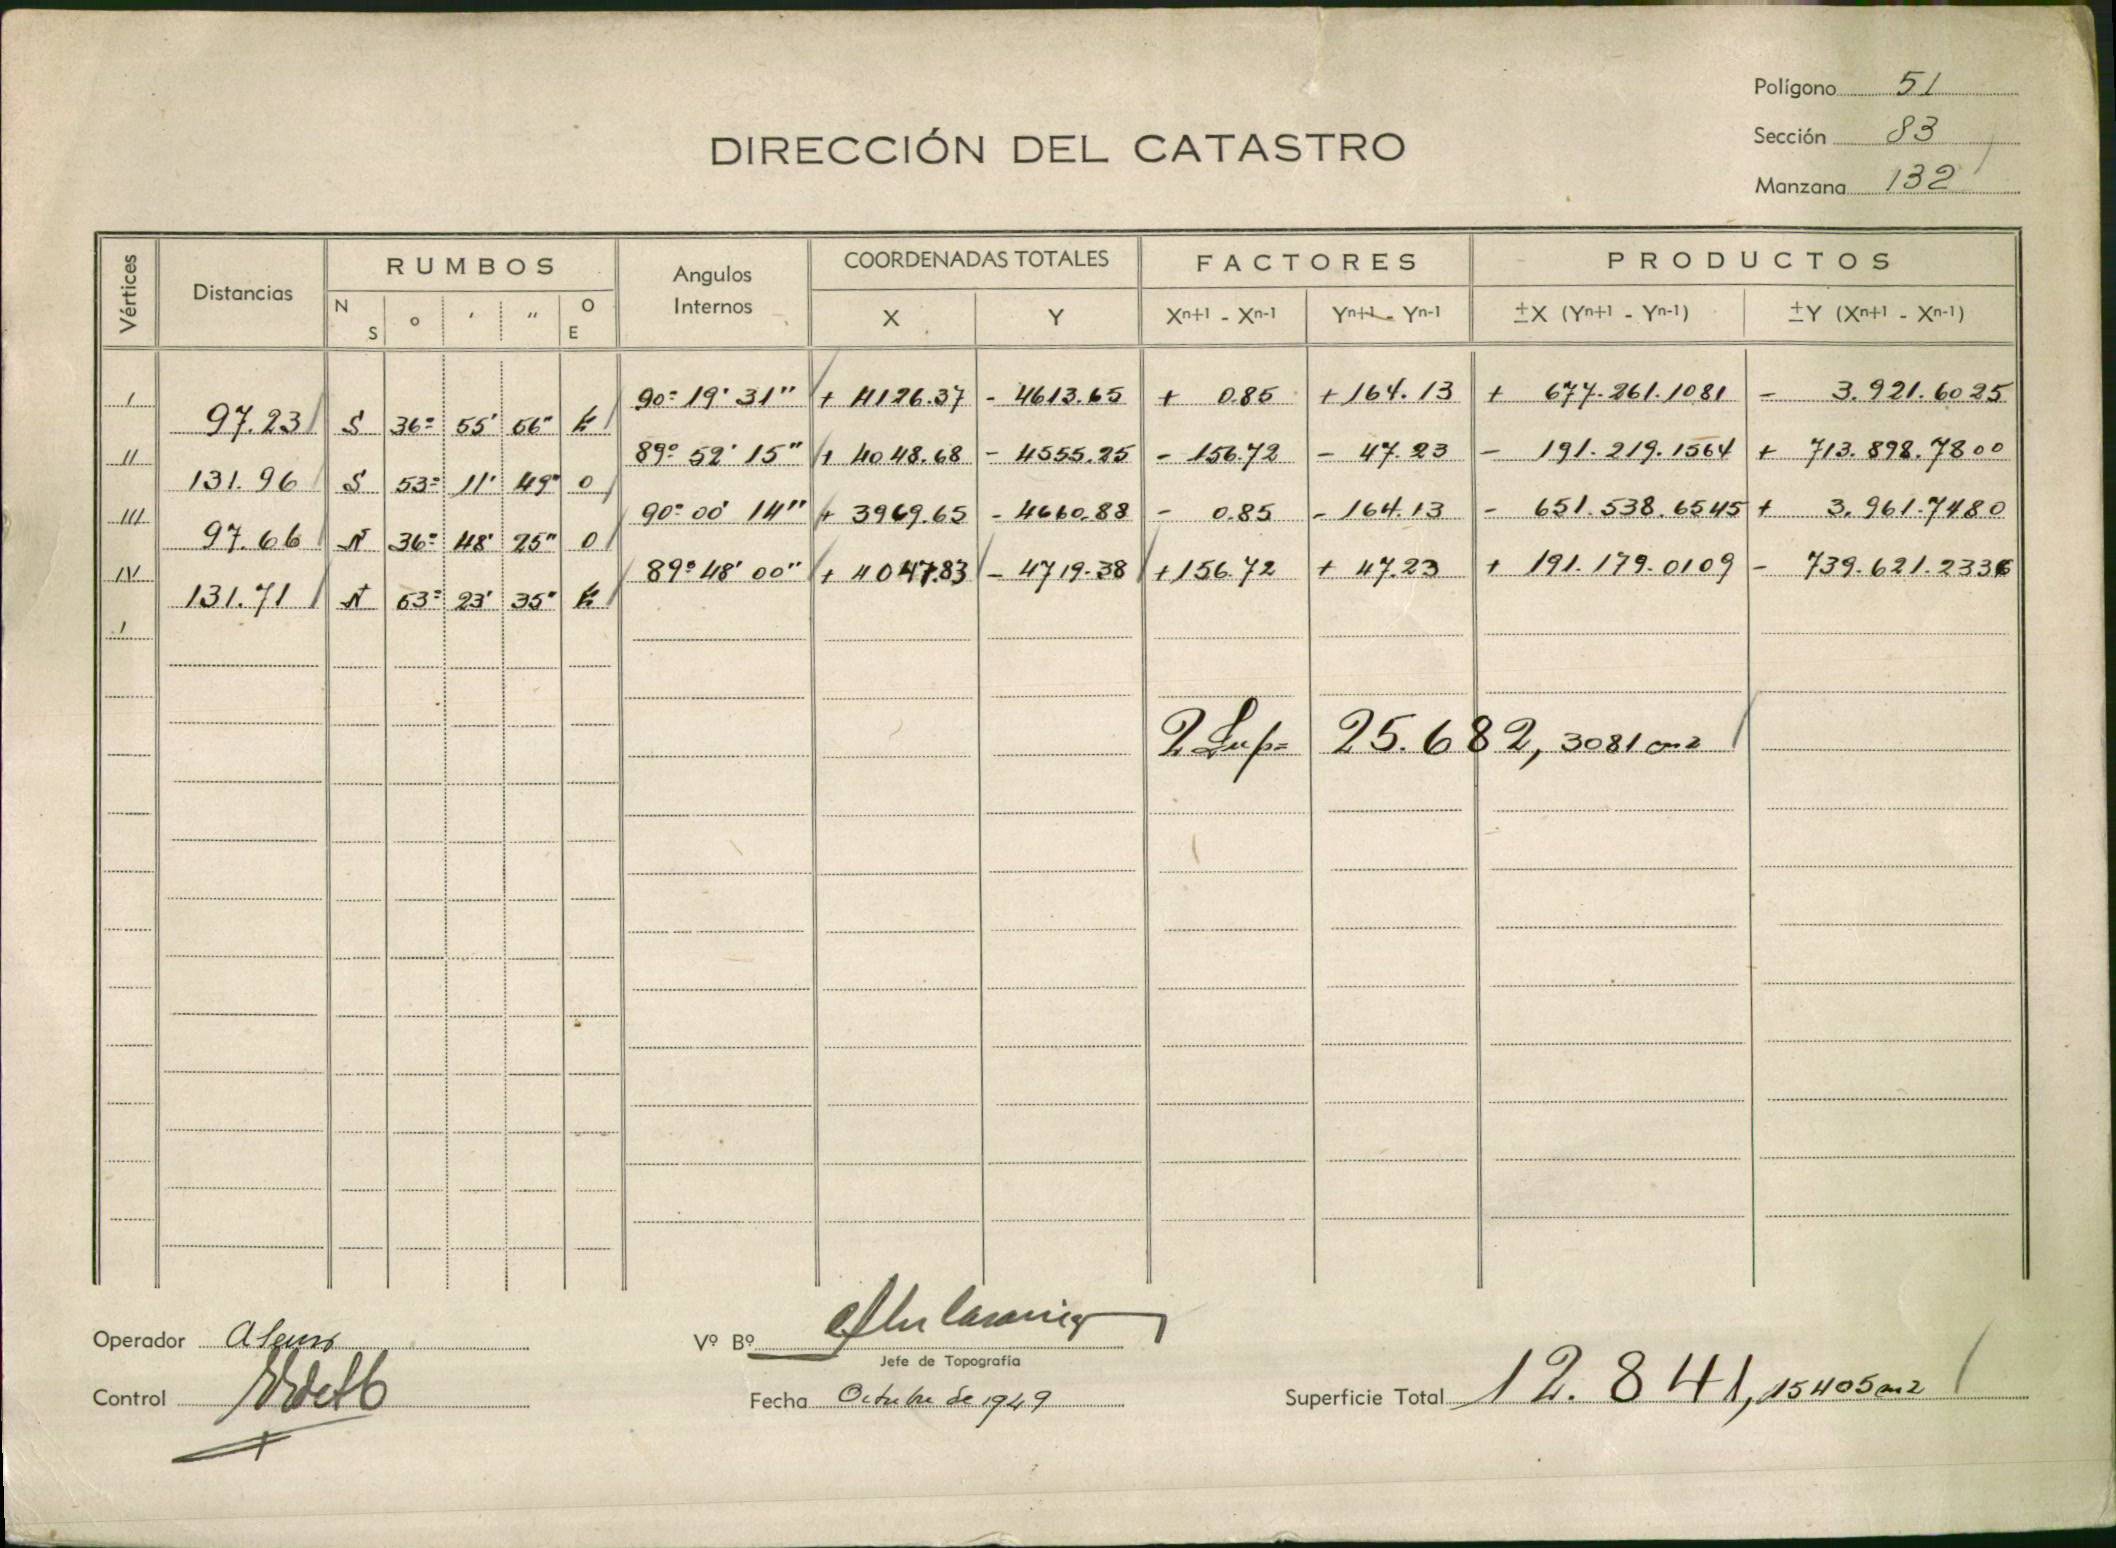 Polígono 51
Sección 83
Manzana 132
DIRECCIÓN DEL CATASTRO
Vértices Distancias RUMBOS Angulos Internos COORDENADAS TOTALES FACTORES PRODUCTOS
N S o ' " O E X Y Xn+1 - Xn-1 Yn+1 - Yn-1 ±X (Yn+1 - Yn-1) ±Y (Xn+1 - Xn-1)
I 90º 19' 31" + 4126.37 - 4613.65 + 0.85 + 164.13 + 677.261.1081 - 3.921.6025
97.23 S 36º 55' 56" E
II 89º 52' 15" + 4048.68 - 4555.25 - 156.72 - 47.23 - 191.219.1564 + 713.898.7800
131.96 S 53º 11' 49" O
III 90º 00' 14" + 3969.65 - 4660.88 - 0.85 - 164.13 - 651.538.6545 + 3.961.7480
97.66 N 36º 48' 25" O
IV 89º 48' 00" + 4047.83 - 4719.38 + 156.72 + 47.23 + 191.179.0109 - 739.621.2336
131.71 N 53º 23' 35" E
I
2 Sup= 25.682, 3081 m2
Operador Alonso
Vº Bº
Jefe de Topografía
Control
Fecha Octubre de 1949
Superficie Total 12.841, 15405 m2